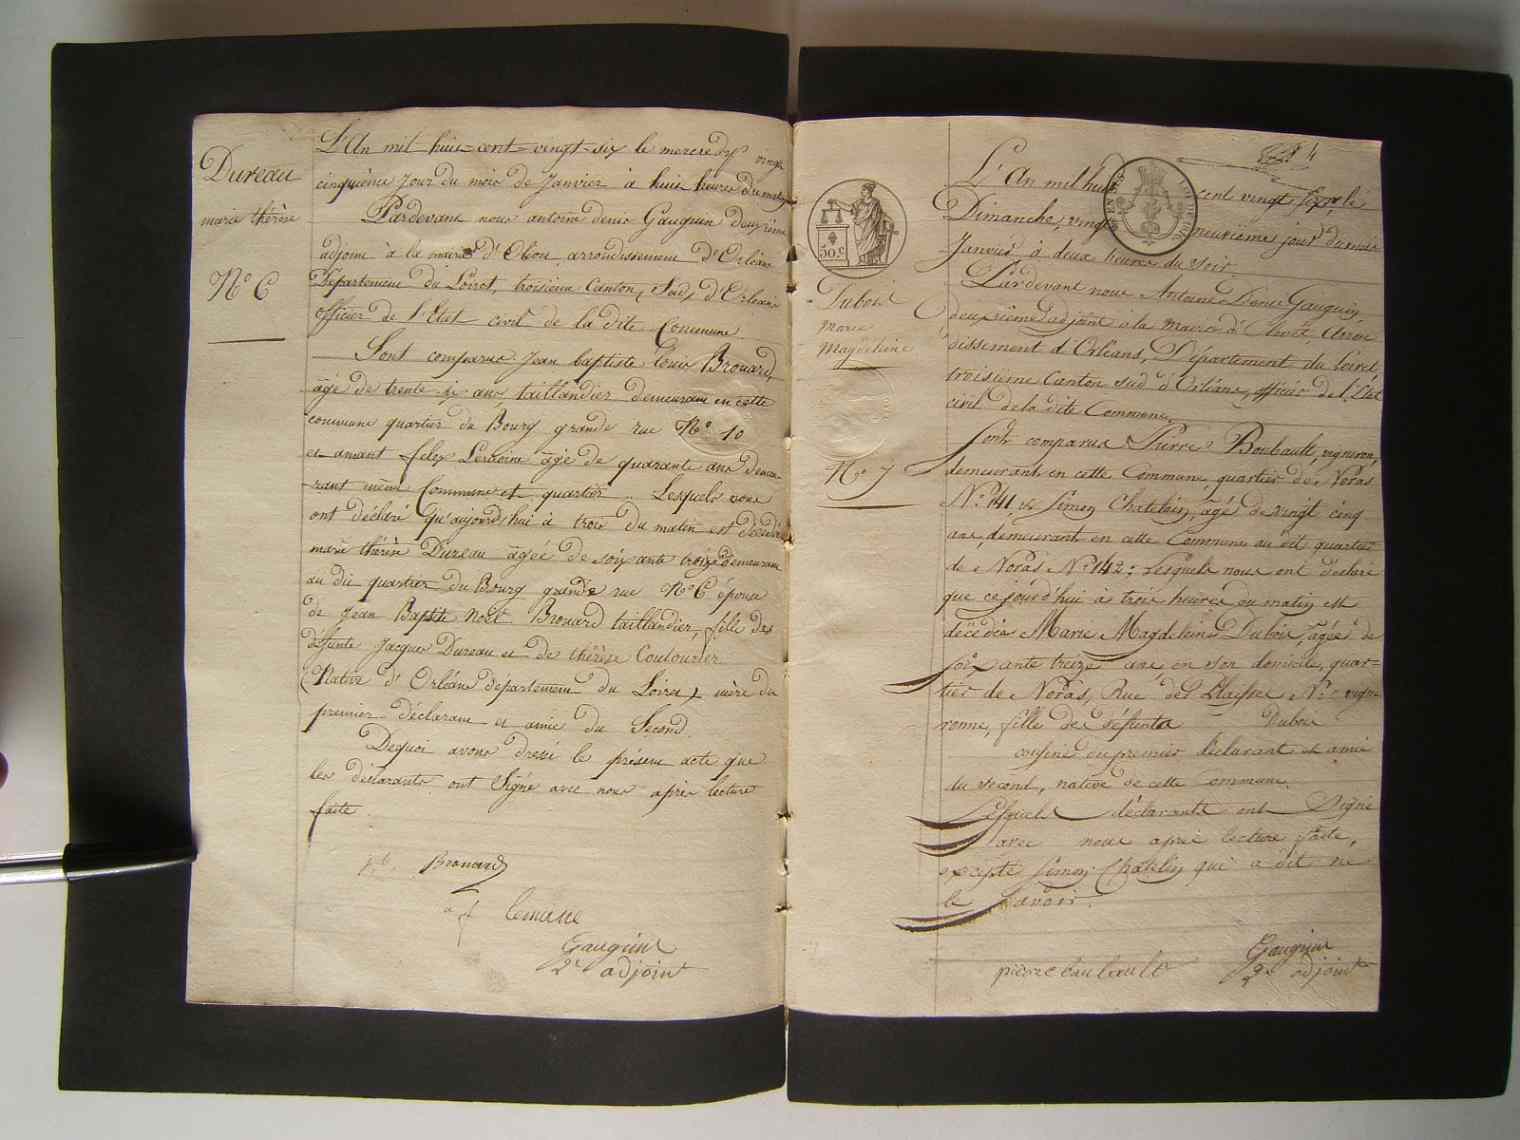 Dureau
marie thérèse
N° 6
L'An mil huit cent vingt-six le mercredy vingt
cinquième Jour du mois de Janvier à huit heures du matin
Pardevant nous antoine denis Gauguin deuxième
adjoint à la mairie d'Olivet arrondissement d'Orléans
Département du Loiret, troisième Canton, Sud, d'Orléans
officier de l'Etat civil de la dite Commune
Sont comparus Jean baptiste Brouard,
âgé de trente ans, taillandier demeurant en cette
commune quartier du Bourg grande rue N° 10
et amant felix âgé de quarante ans demeu-
rant même Commune et quartier .. Lesquels nous
ont déclaré qu'aujourd'hui à trois du matin est décédée
marie thérèse Dureau âgée de soixante treize demeurant
au dit quartier du Bourg grande rue N° 6 épouse
de Jean Baptiste Noël Brouard taillandier, fille des
défunts Jacques Dureau et de thérèse Coulourier
Native d'Orléans département du Loiret, mère du
premier déclarant et amie du Second.
Dequoi avons dressé le présent acte que
les déclarants ont Signé avec nous après lecture
faite.
Brouard
Gauguin
2e adjoint
4
50 c.
Dubois
Marie
Magdeleine
N° 7
L'An mil huit cent vingt six, le
Dimanche, vingt neuvième jour du mois
Janvier à deux heures du soir.
Pardevant nous Antoine Denis Gauguin,
deuxième adjoint à la mairie d'Olivet, Arron
dissement d'Orléans, Département du loiret,
troisième Canton sud d'Orléans, officier de l'Etat
civil de la dite Commune,
Sont comparus Pierre Boubault, vigneron,
demeurant en cette Commune, quartier de Noras
N° 141, et Simon Chatelain, âgé de vingt cinq
ans, demeurant en cette Commune au dit quartier
de Noras N° 142: Lesquels nous ont déclaré
que ce jourd'hui à trois heures du matin est
décédée Marie Magdeleine Dubois, âgée de
soixante treize ans, en son domicile, quar=
tier de Noras, Rue des N° vigne
ronne, fille de défunts Dubois
cousine du premier déclarant et amie
du second, native de cette Commune.
Lesquels déclarants ont Signé
avec nous après lecture faite,
excepté Simon Chatelin qui a dit ne
le savoir.
pierre baubault
Gauguin
2e adjoint